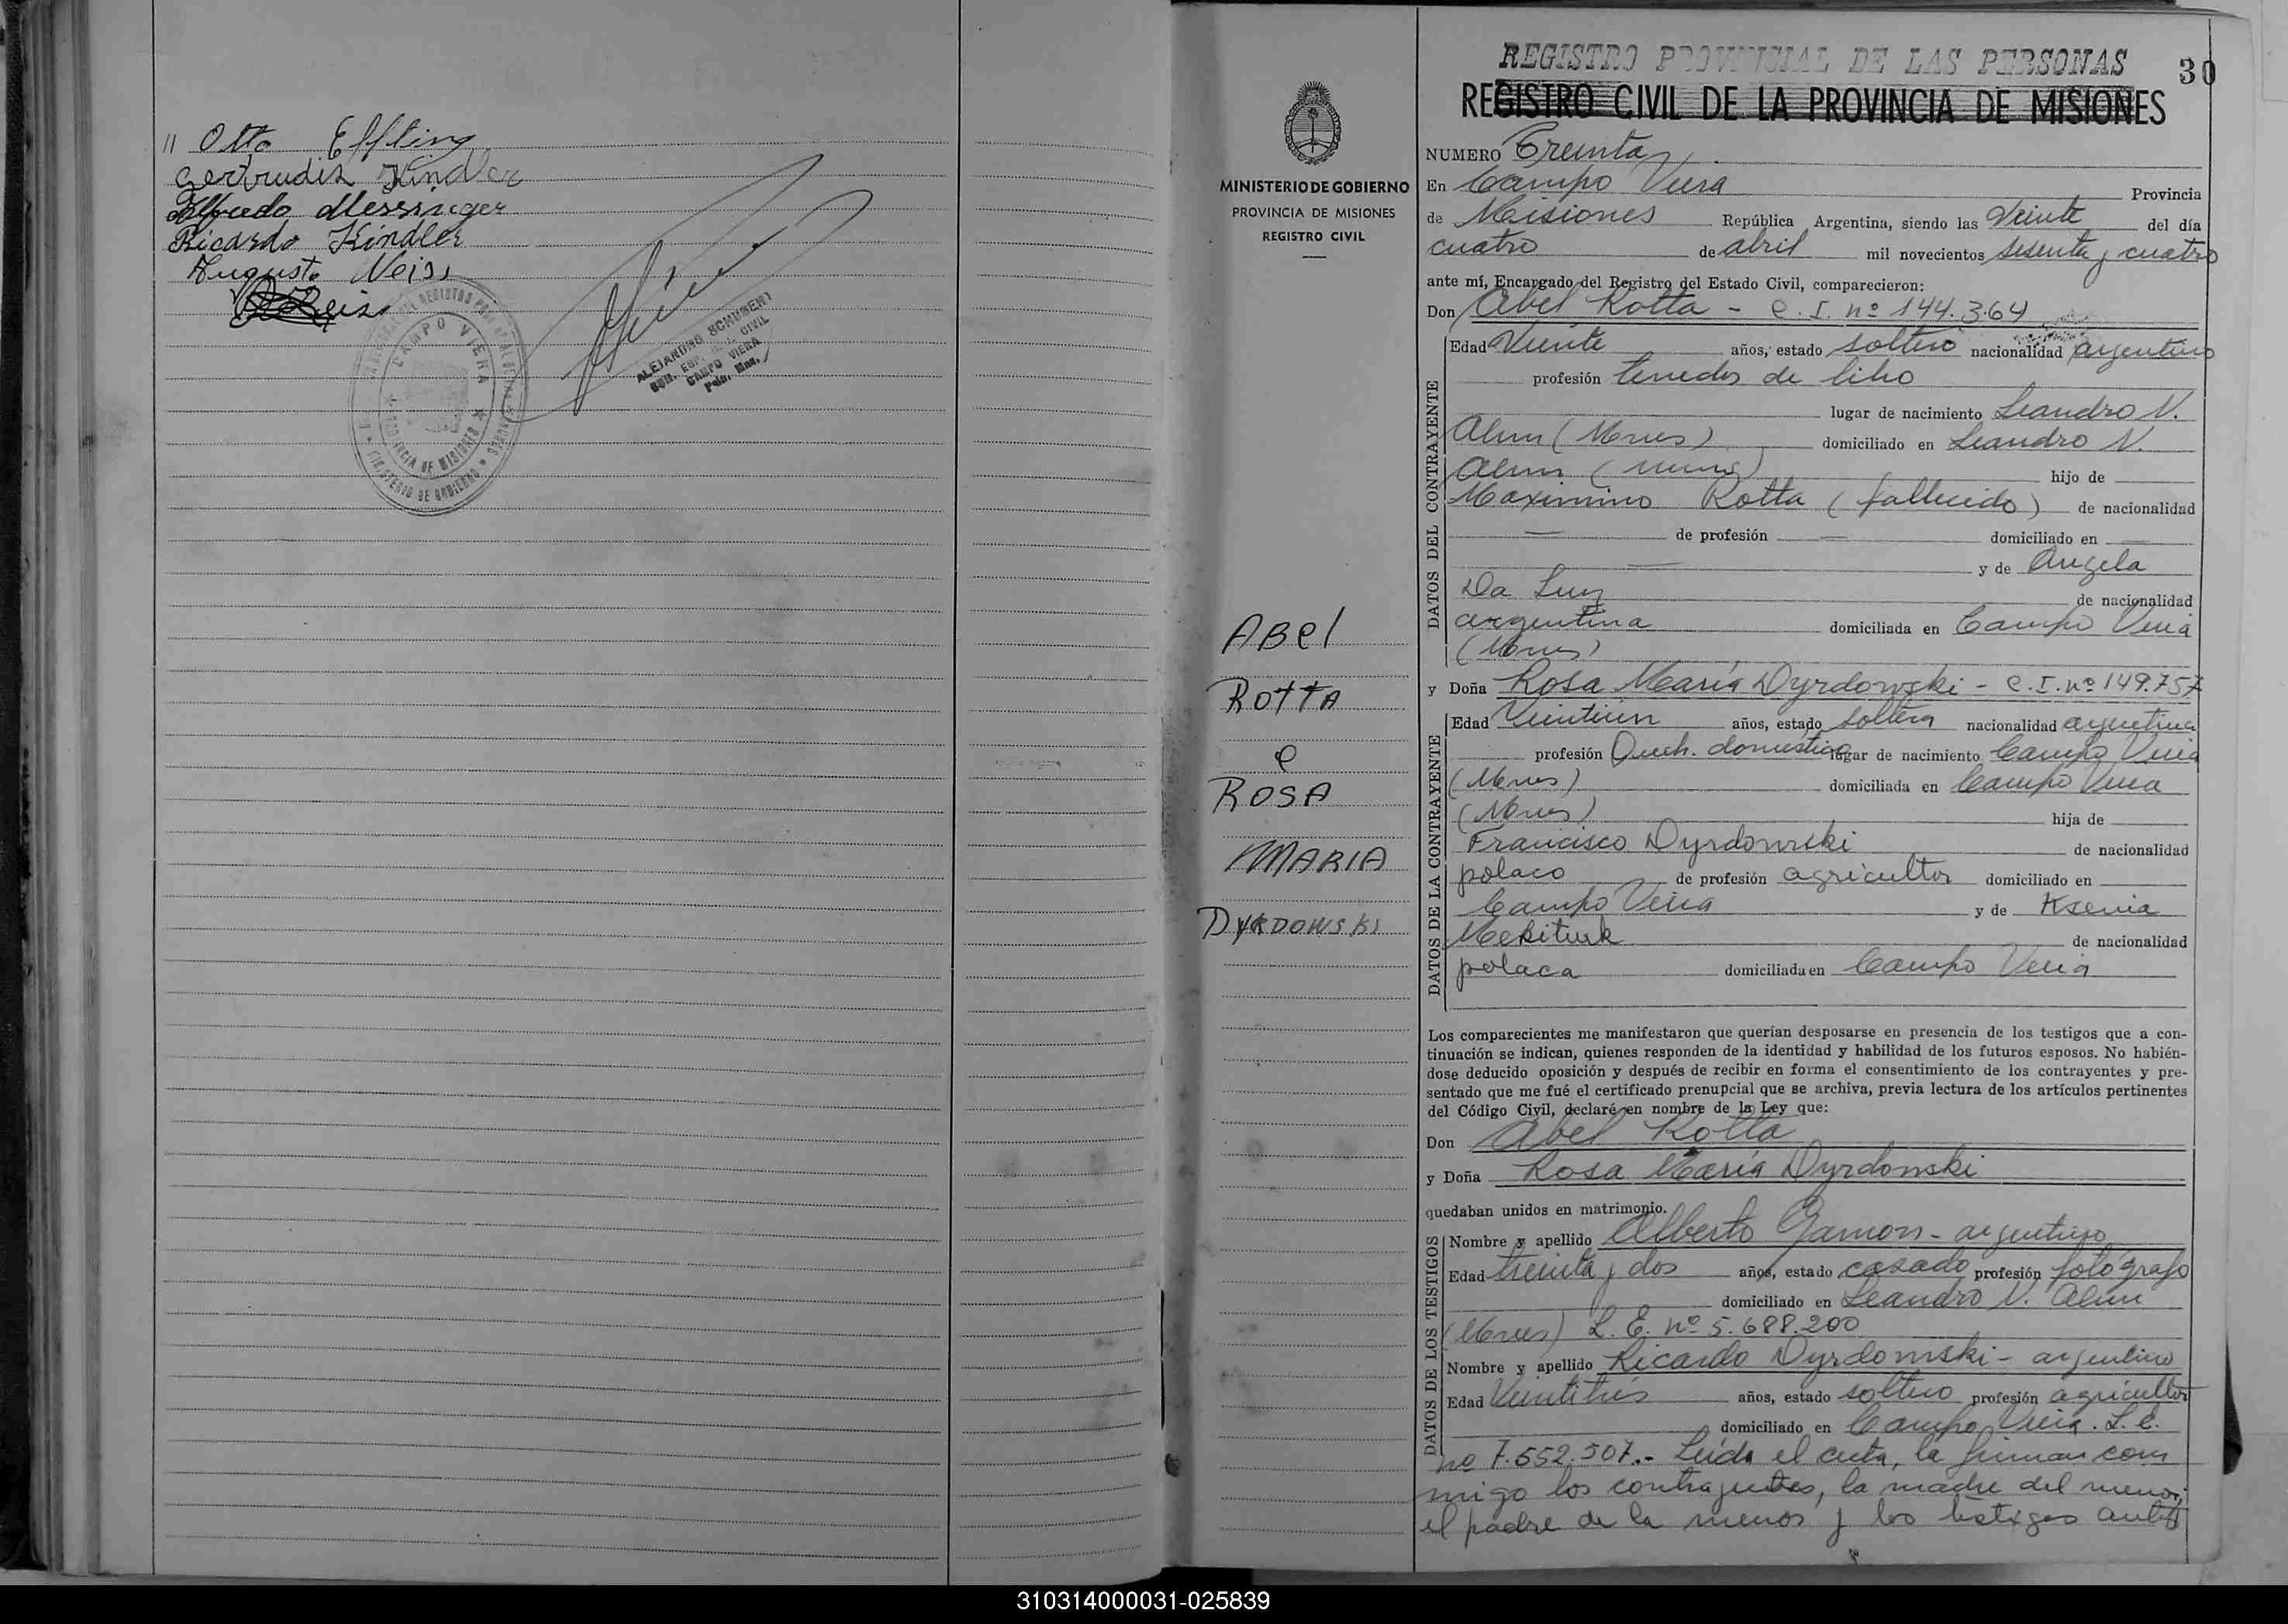 " Otto Effting
Gertrudis Kindler
Alfredo Messinger
Ricardo Kindler
Augusto Neiss
CAMPO VIERA
PROVINCIA DE MISIONES
MINISTERIO DE GOBIERNO
ALEJANDRO SCHUBERT
CIVIL
CAMPO VIERA
Pcia. Mnes.
MINISTERIO DE GOBIERNO
PROVINCIA DE MISIONES
REGISTRO CIVIL
ABel
ROTTA
e
ROSA
MARIA
DYRDOWSKI
REGISTRO PROVINCIAL DE LAS PERSONAS
30
REGISTRO CIVIL DE LA PROVINCIA DE MISIONES
NUMERO Treinta
En Campo Viera Provincia
de Misiones República Argentina, siendo las veinte del día
cuatro de abril mil novecientos sesenta y cuatro
ante mí, Encargado del Registro del Estado Civil, comparecieron:
Don Abel Rotta - C. I. nº 144.364
DATOS DEL CONTRAYENTE
Edad Veinte años, estado soltero nacionalidad argentino
profesión tenedor de libro
lugar de nacimiento Leandro N.
Alem (Mnes) domiciliado en Leandro N.
Alem (Mnes) hijo de
Maximino Rotta (fallecido) de nacionalidad
— de profesión — domiciliado en —
— y de Angela
Da Luz de nacionalidad
argentina domiciliada en Campo Viera
(Mnes)
y Doña Rosa María Dyrdowski - C. I. nº 149.757
DATOS DE LA CONTRAYENTE
Edad Veintiún años, estado soltera nacionalidad argentina
profesión Queh. domestico lugar de nacimiento Campo Viera
(Mnes) domiciliada en Campo Viera
(Mnes) hija de
Francisco Dyrdowski de nacionalidad
polaco de profesión agricultor domiciliado en
Campo Viera y de Ksenia
Mekituk de nacionalidad
polaca domiciliada en Campo Viera
Los comparecientes me manifestaron que querían desposarse en presencia de los testigos que a con-
tinuación se indican, quienes responden de la identidad y habilidad de los futuros esposos. No habién-
dose deducido oposición y después de recibir en forma el consentimiento de los contrayentes y pre-
sentado que me fué el certificado prenupcial que se archiva, previa lectura de los artículos pertinentes
del Código Civil, declaré en nombre de la Ley que:
Don Abel Rotta
y Doña Rosa María Dyrdowski
quedaban unidos en matrimonio.
DATOS DE LOS TESTIGOS
Nombre y apellido Alberto Gamon - argentino
Edad treinta y dos años, estado casado profesión fotógrafo
domiciliado en Leandro N. Alem
(Mnes) L. E. nº 5.688.200
Nombre y apellido Ricardo Dyrdowski - argentino
Edad Veintitrés años, estado soltero profesión agricultor
domiciliado en Campo Viera. L. E.
nº 7.552.507.- Leída el acta, la firman con
migo los contrayentes, la madre del menor,
el padre de la menor y los testigos antes
310314000031-025839